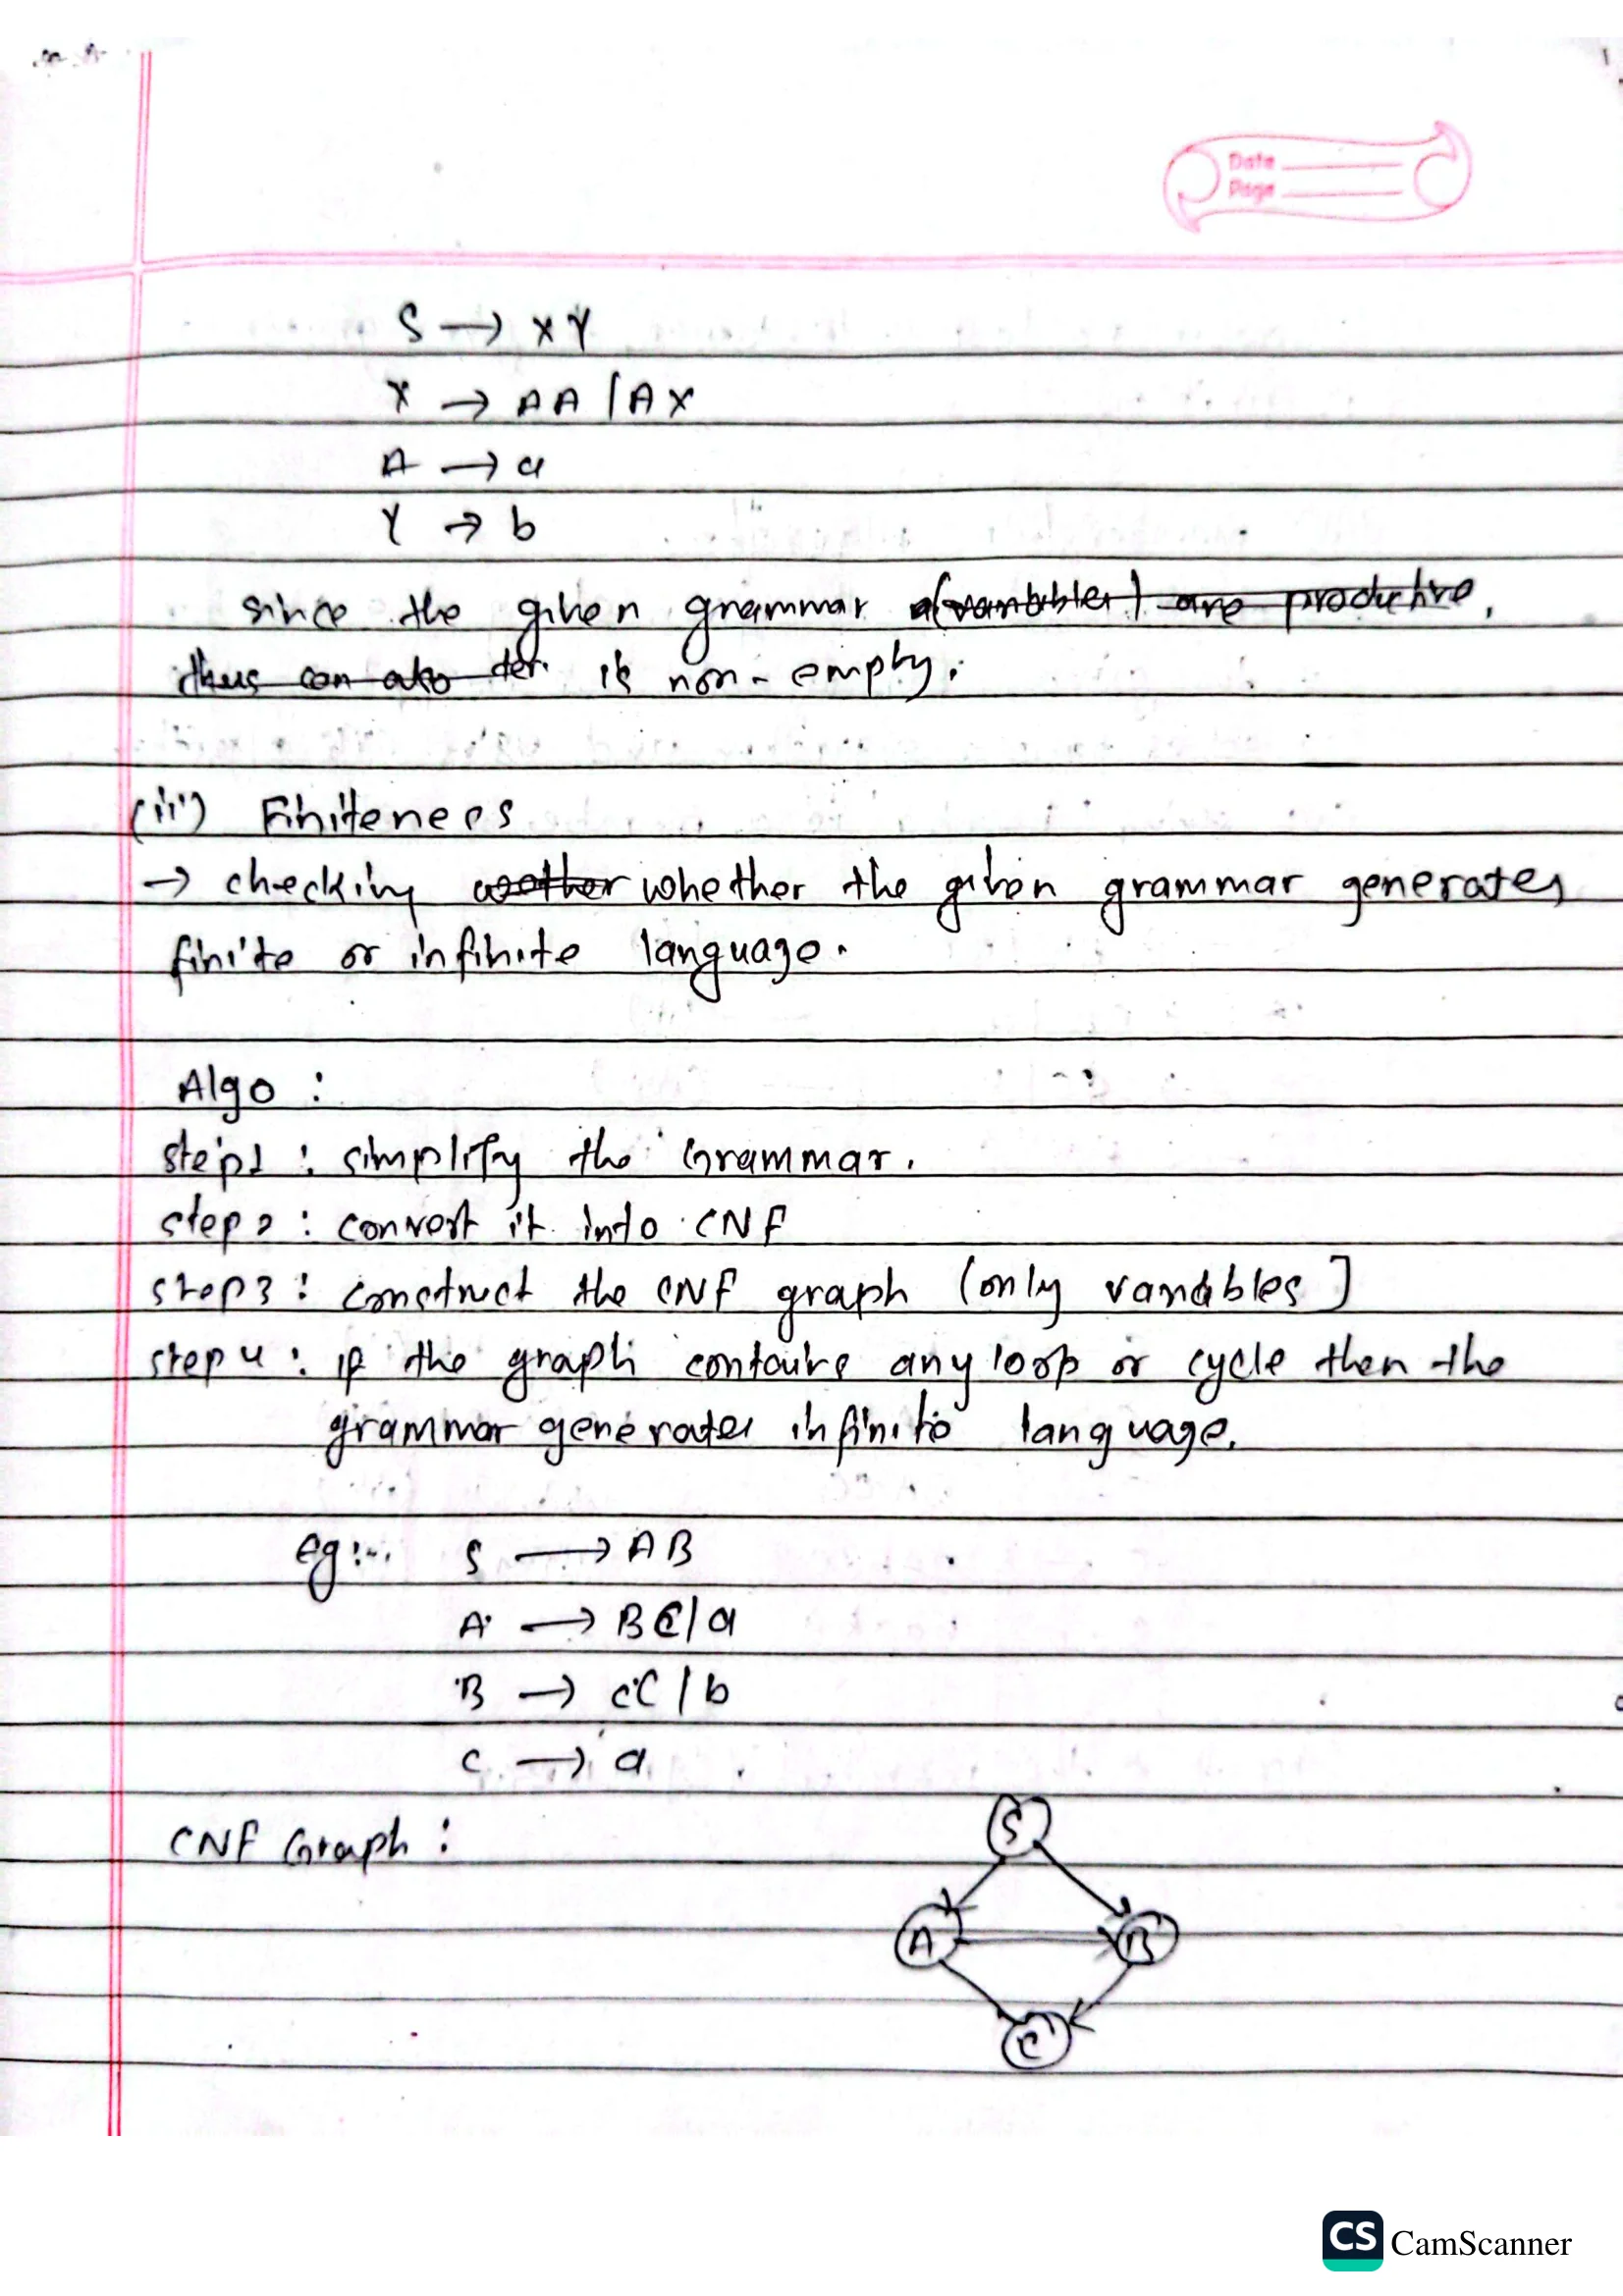 Date
Page
S → XY
X → AA | AX
A → a
Y → b
since the given grammar a(variables) are productive,
thus can also der. is non-empty.
(ii) Finiteness
→ checking weather whether the given grammar generates
finite or infinite language.
Algo :
step1 : simplify the Grammar.
step2 : convert it into CNF
step3 : construct the CNF graph (only variables]
step4 : if the graph contains any loop or cycle then the
grammar generates infinite language.
eg:-. S → AB
A → BC/a
B → CC/b
C → a
CNF Graph :
S
A B
C
CS CamScanner